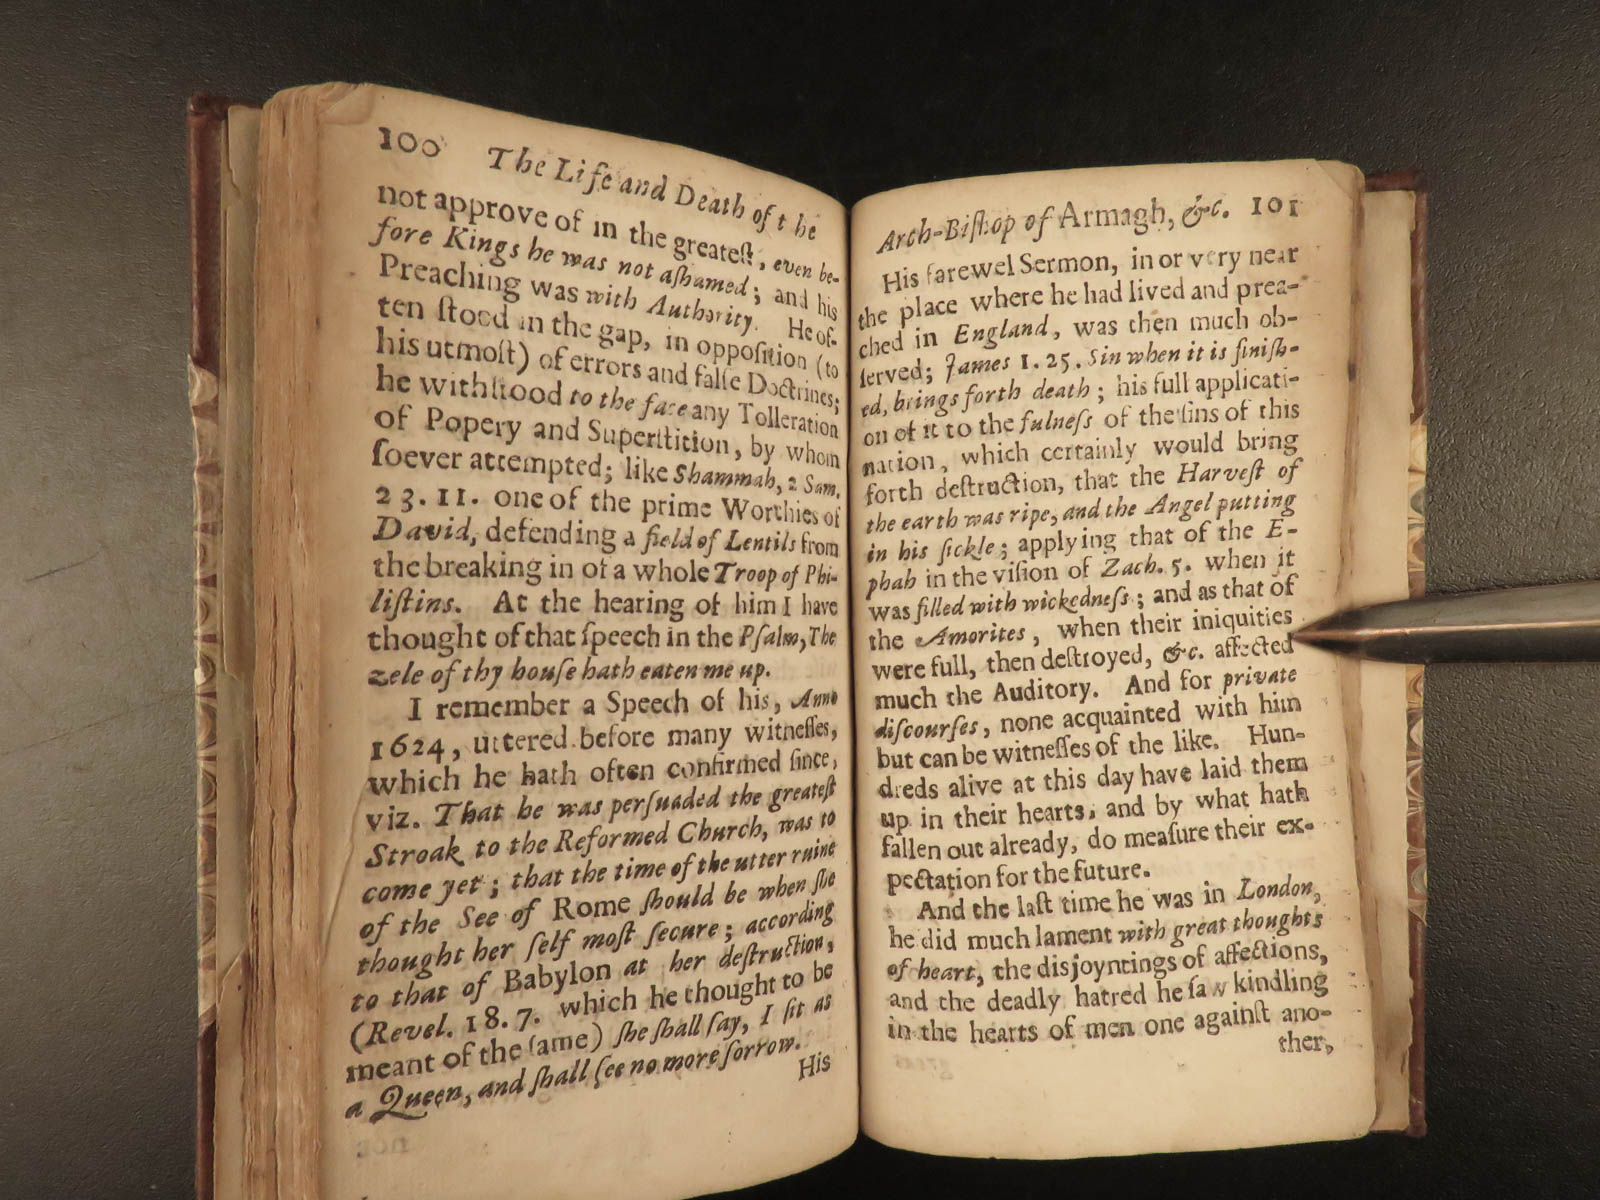 100 The Life and Death of the
not approve of in the greateſt, even be-
fore Kings he was not aſhamed; and his
Preaching was with Authority. He of-
ten ſtood in the gap, in oppoſition (to
his utmoſt) of errors and falſe Doctrines;
he withſtood to the face any Tolleration
of Popery and Superſtition, by whom
ſoever attempted; like Shammah, 2 Sam.
23.11. one of the prime Worthies of
David, defending a field of Lentils from
the breaking in of a whole Troop of Phi-
liſtins. At the hearing of him I have
thought of that ſpeech in the Pſalm, The
zele of thy houſe hath eaten me up.
I remember a Speech of his, Anno
1624, uttered before many witneſſes,
which he hath often confirmed ſince,
viz. That he was perſuaded the greateſt
Stroak to the Reformed Church, was to
come yet; that the time of the utter ruine
of the See of Rome ſhould be when ſhe
thought her ſelf moſt ſecure; according
to that of Babylon at her deſtruction,
(Revel. 18.7. which he thought to be
meant of the ſame) ſhe ſhall ſay, I ſit as
a Queen, and ſhall ſee no more ſorrow.
His
Arch-Biſhop of Armagh, &c. 101
His farewel Sermon, in or very near
the place where he had lived and prea-
ched in England, was then much ob-
ſerved; James 1.25. Sin when it is finiſh-
ed, brings forth death; his full applicati-
on of it to the fulneſs of the ſins of this
nation, which certainly would bring
forth deſtruction, that the Harveſt of
the earth was ripe, and the Angel putting
in his ſickle; applying that of the E-
phah in the viſion of Zach. 5. when it
was filled with wickedneſs; and as that of
the Amorites, when their iniquities
were full, then deſtroyed, &c. affected
much the Auditory. And for private
diſcourſes, none acquainted with him
but can be witneſſes of the like. Hun-
dreds alive at this day have laid them
up in their hearts, and by what hath
fallen out already, do meaſure their ex-
pectation for the future.
And the laſt time he was in London,
he did much lament with great thoughts
of heart, the disjoyntings of affections,
and the deadly hatred he ſaw kindling
in the hearts of men one againſt ano-
ther,